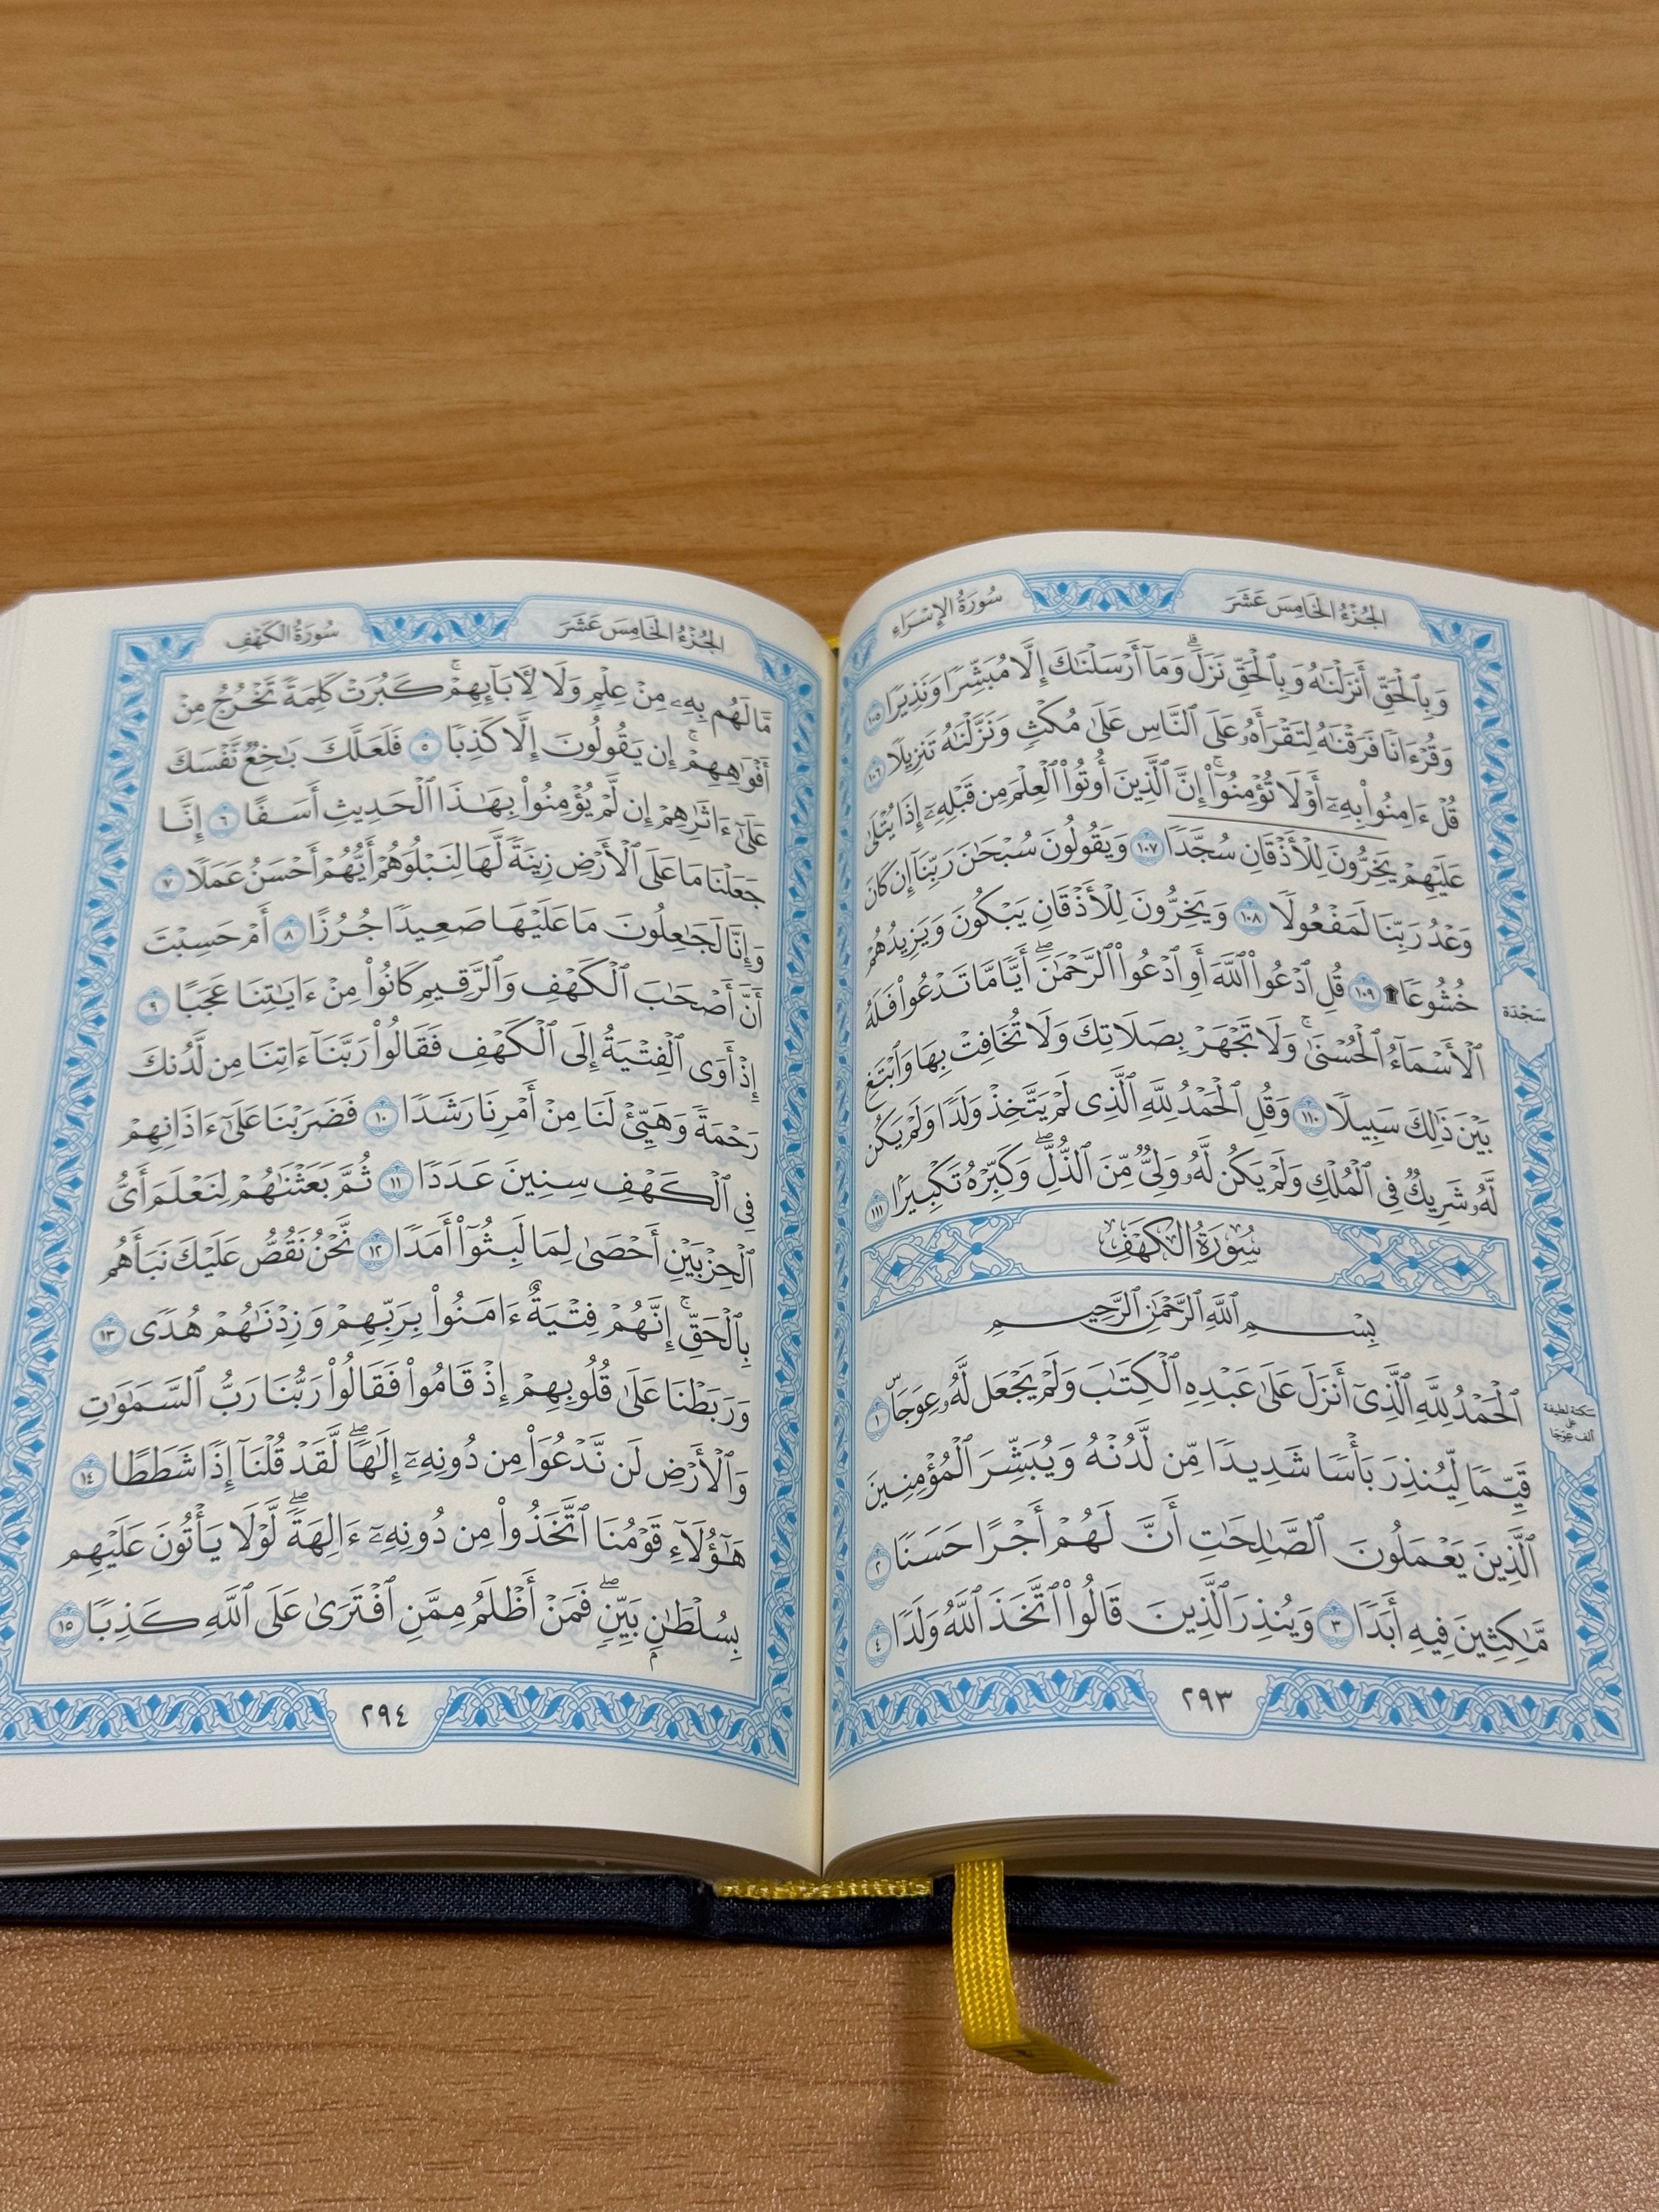 الجُزْءُ الخَامِسَ عَشَرَ
سُورَةُ الإِسْرَاءِ
وَبِٱلْحَقِّ أَنزَلْنَٰهُ وَبِٱلْحَقِّ نَزَلَۗ وَمَآ أَرْسَلْنَٰكَ إِلَّا مُبَشِّرًا وَنَذِيرًا ١٠٥
وَقُرْءَانًا فَرَقْنَٰهُ لِتَقْرَأَهُۥ عَلَى ٱلنَّاسِ عَلَىٰ مُكْثٍ وَنَزَّلْنَٰهُ تَنزِيلًا ١٠٦
قُلْ ءَامِنُوا۟ بِهِۦٓ أَوْ لَا تُؤْمِنُوٓا۟ۚ إِنَّ ٱلَّذِينَ أُوتُوا۟ ٱلْعِلْمَ مِن قَبْلِهِۦٓ إِذَا يُتْلَىٰ
عَلَيْهِمْ يَخِرُّونَ لِلْأَذْقَانِ سُجَّدًا ١٠٧ وَيَقُولُونَ سُبْحَٰنَ رَبِّنَآ إِن كَانَ
وَعْدُ رَبِّنَا لَمَفْعُولًا ١٠٨ وَيَخِرُّونَ لِلْأَذْقَانِ يَبْكُونَ وَيَزِيدُهُمْ
خُشُوعًا ۩ ١٠٩ قُلِ ٱدْعُوا۟ ٱللَّهَ أَوِ ٱدْعُوا۟ ٱلرَّحْمَٰنَۖ أَيًّا مَّا تَدْعُوا۟ فَلَهُ
ٱلْأَسْمَآءُ ٱلْحُسْنَىٰۚ وَلَا تَجْهَرْ بِصَلَاتِكَ وَلَا تُخَافِتْ بِهَا وَٱبْتَغِ
بَيْنَ ذَٰلِكَ سَبِيلًا ١١٠ وَقُلِ ٱلْحَمْدُ لِلَّهِ ٱلَّذِى لَمْ يَتَّخِذْ وَلَدًا وَلَمْ يَكُن
لَّهُۥ شَرِيكٌ فِى ٱلْمُلْكِ وَلَمْ يَكُن لَّهُۥ وَلِىٌّ مِّنَ ٱلذُّلِّۖ وَكَبِّرْهُ تَكْبِيرًۢا ١١١
سُورَةُ الكَهْفِ
بِسْمِ ٱللَّهِ ٱلرَّحْمَٰنِ ٱلرَّحِيمِ
ٱلْحَمْدُ لِلَّهِ ٱلَّذِىٓ أَنزَلَ عَلَىٰ عَبْدِهِ ٱلْكِتَٰبَ وَلَمْ يَجْعَل لَّهُۥ عِوَجَاۜ ١
قَيِّمًا لِّيُنذِرَ بَأْسًا شَدِيدًا مِّن لَّدُنْهُ وَيُبَشِّرَ ٱلْمُؤْمِنِينَ
ٱلَّذِينَ يَعْمَلُونَ ٱلصَّٰلِحَٰتِ أَنَّ لَهُمْ أَجْرًا حَسَنًا ٢
مَّٰكِثِينَ فِيهِ أَبَدًا ٣ وَيُنذِرَ ٱلَّذِينَ قَالُوا۟ ٱتَّخَذَ ٱللَّهُ وَلَدًا ٤
سَجْدَة
سكتة لطيفة
على
ألف عِوَجَا
٢٩٣
الجُزْءُ الخَامِسَ عَشَرَ
سُورَةُ الكَهْفِ
مَّا لَهُم بِهِۦ مِنْ عِلْمٍ وَلَا لِءَابَآئِهِمْۚ كَبُرَتْ كَلِمَةً تَخْرُجُ مِنْ
أَفْوَٰهِهِمْۚ إِن يَقُولُونَ إِلَّا كَذِبًا ٥ فَلَعَلَّكَ بَٰخِعٌ نَّفْسَكَ
عَلَىٰٓ ءَاثَٰرِهِمْ إِن لَّمْ يُؤْمِنُوا۟ بِهَٰذَا ٱلْحَدِيثِ أَسَفًا ٦ إِنَّا
جَعَلْنَا مَا عَلَى ٱلْأَرْضِ زِينَةً لَّهَا لِنَبْلُوَهُمْ أَيُّهُمْ أَحْسَنُ عَمَلًا ٧
وَإِنَّا لَجَٰعِلُونَ مَا عَلَيْهَا صَعِيدًا جُرُزًا ٨ أَمْ حَسِبْتَ
أَنَّ أَصْحَٰبَ ٱلْكَهْفِ وَٱلرَّقِيمِ كَانُوا۟ مِنْ ءَايَٰتِنَا عَجَبًا ٩
إِذْ أَوَى ٱلْفِتْيَةُ إِلَى ٱلْكَهْفِ فَقَالُوا۟ رَبَّنَآ ءَاتِنَا مِن لَّدُنكَ
رَحْمَةً وَهَيِّئْ لَنَا مِنْ أَمْرِنَا رَشَدًا ١٠ فَضَرَبْنَا عَلَىٰٓ ءَاذَانِهِمْ
فِى ٱلْكَهْفِ سِنِينَ عَدَدًا ١١ ثُمَّ بَعَثْنَٰهُمْ لِنَعْلَمَ أَىُّ
ٱلْحِزْبَيْنِ أَحْصَىٰ لِمَا لَبِثُوٓا۟ أَمَدًا ١٢ نَّحْنُ نَقُصُّ عَلَيْكَ نَبَأَهُم
بِٱلْحَقِّۚ إِنَّهُمْ فِتْيَةٌ ءَامَنُوا۟ بِرَبِّهِمْ وَزِدْنَٰهُمْ هُدًى ١٣
وَرَبَطْنَا عَلَىٰ قُلُوبِهِمْ إِذْ قَامُوا۟ فَقَالُوا۟ رَبُّنَا رَبُّ ٱلسَّمَٰوَٰتِ
وَٱلْأَرْضِ لَن نَّدْعُوَا۟ مِن دُونِهِۦٓ إِلَٰهًاۖ لَّقَدْ قُلْنَآ إِذًا شَطَطًا ١٤
هَٰٓؤُلَآءِ قَوْمُنَا ٱتَّخَذُوا۟ مِن دُونِهِۦٓ ءَالِهَةًۖ لَّوْلَا يَأْتُونَ عَلَيْهِم
بِسُلْطَٰنٍۭ بَيِّنٍۖ فَمَنْ أَظْلَمُ مِمَّنِ ٱفْتَرَىٰ عَلَى ٱللَّهِ كَذِبًا ١٥
٢٩٤